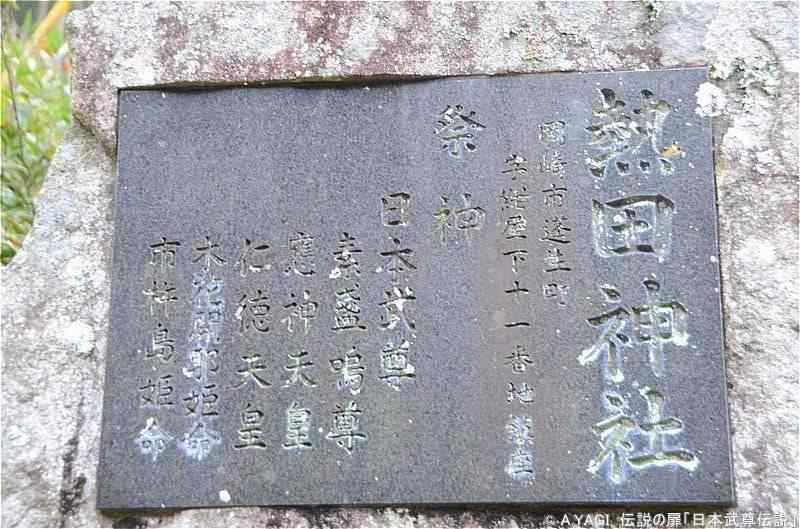 熱田神社
岡崎市蓬生町
字紺屋下十一番地鎮座
祭神
日本武尊
素盞嗚尊
應神天皇
仁徳天皇
木花開耶姫命
市杵島姫命
© A.YAGI 伝説の扉「日本武尊伝説」